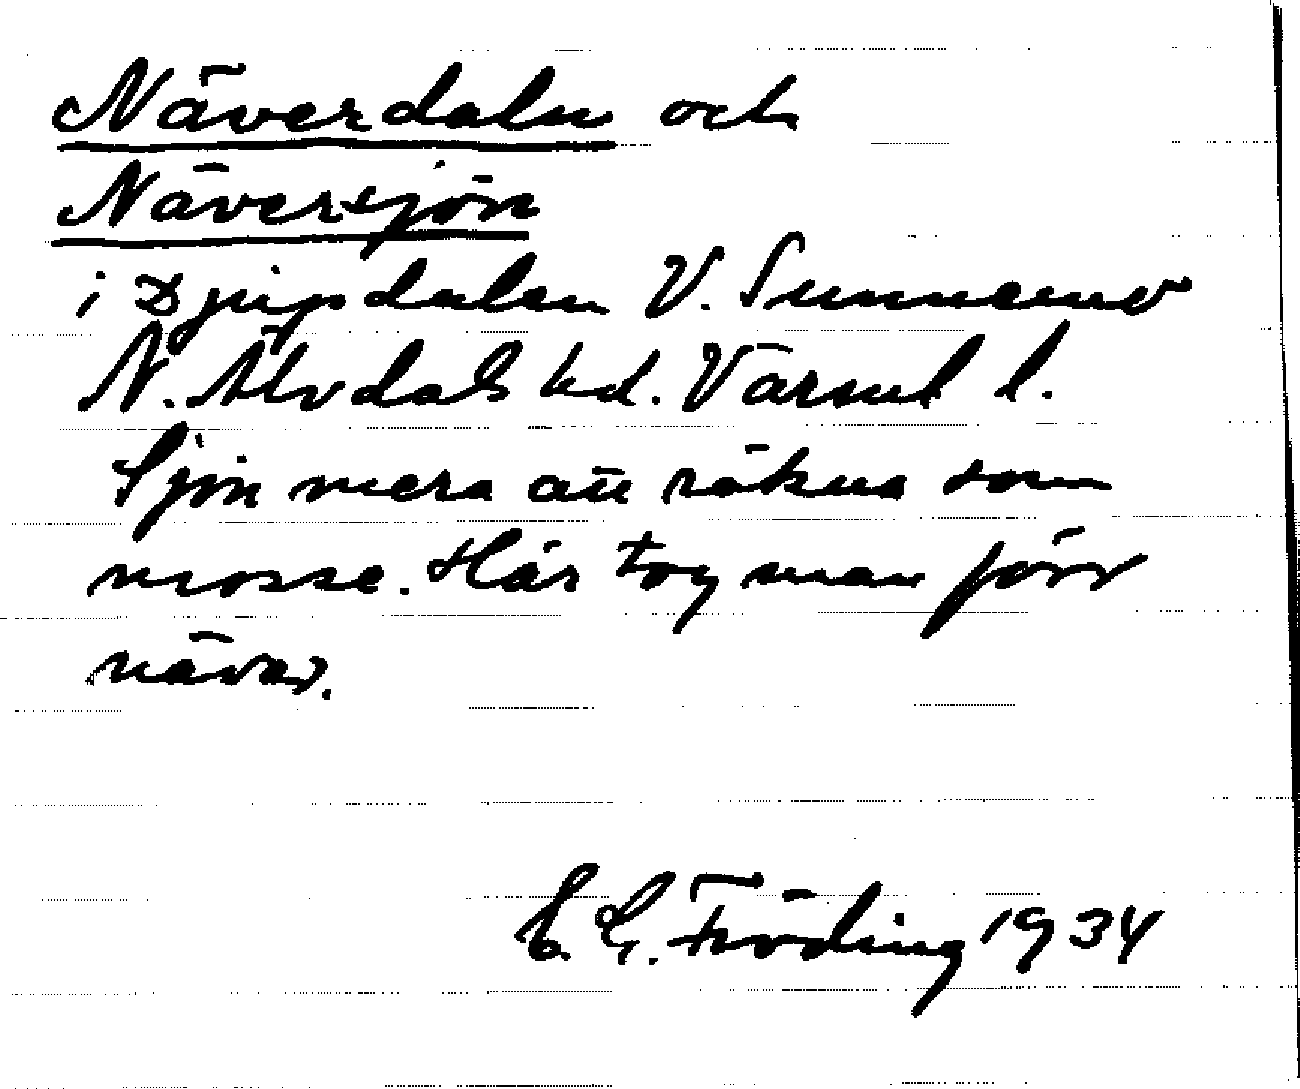 Näverdalen och
Näversjön
i Djupdalen V. Sunnemo
N. Älvdals hd. Värml l.
Sjön mera att räkna som
mosse. Här tog man förr
näver.
E. G. Fröding 1934